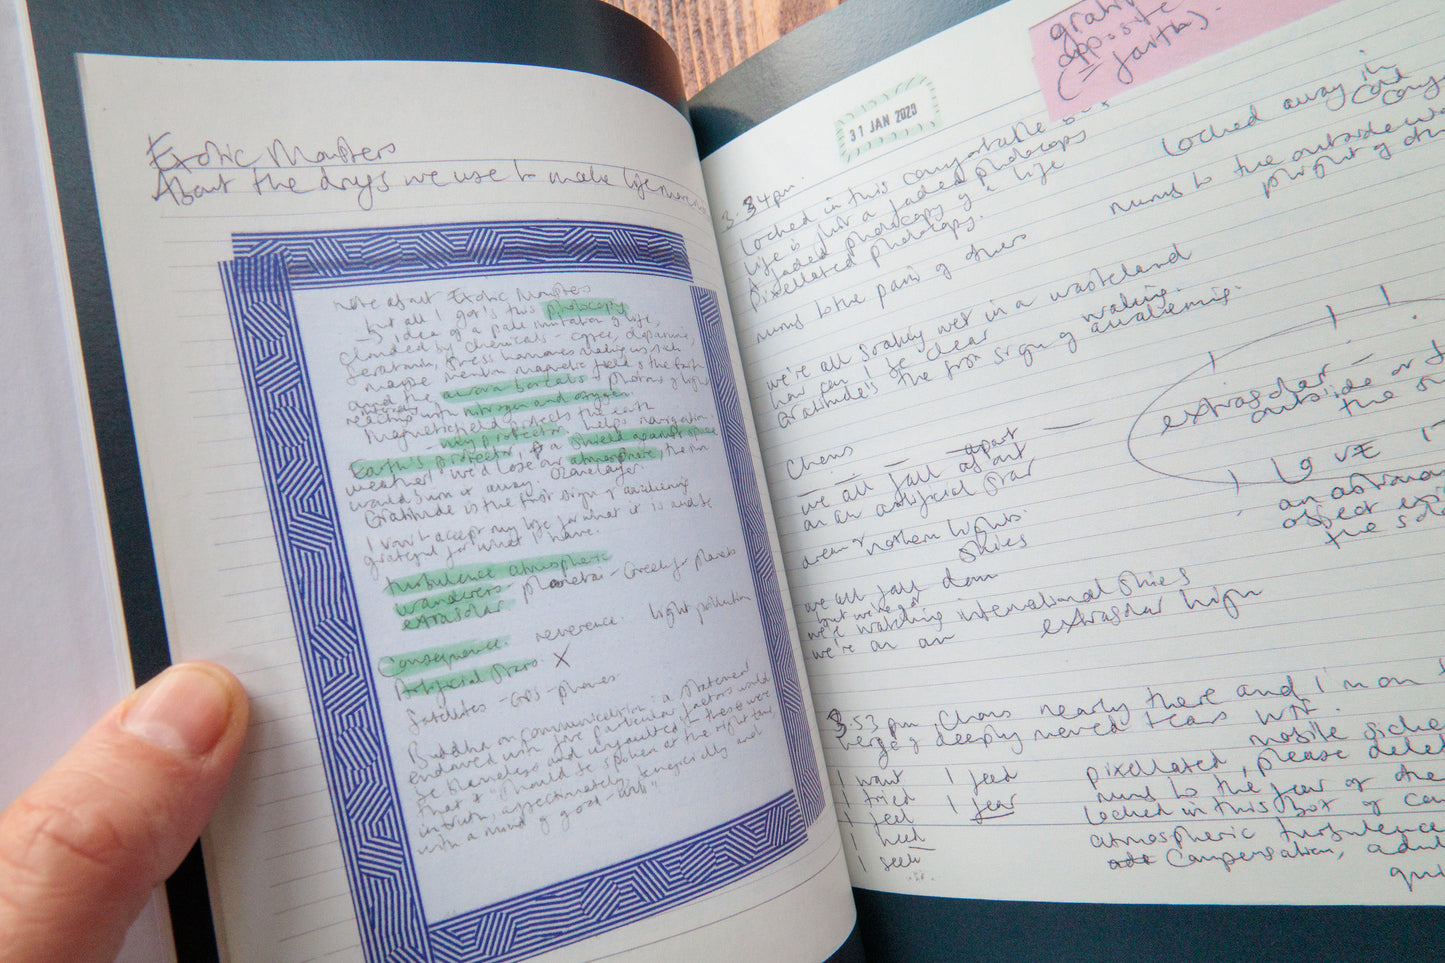 Exotic Monsters
About the drugs we use to make life more
note about Exotic Monsters
but all I got is this photocopy
→ idea of a pale imitation of life,
clouded by chemicals - coffee, dopamine,
serotonin, stress hormones
maybe mention magnetic field of the Earth
and the aurora borealis - photons of light
reacting with nitrogen and oxygen.
Magnetic field protects the earth
- my protector, helps navigation.
Earth's protector, a shield against space
weather, we'd lose our atmosphere, the sun
would burn it away. Ozone layer.
Gratitude is the first sign of awakening
I want to accept my life for what it is and be
grateful for what I have.
turbulence atmospheric
wanderers planetai - Greek for planets
extrasolar
Consequence. reverence. light pollution
Artificial Stars. X
Satellites - GPS - phones
Buddha on communication: a statement
endowed with five particular factors would
be blameless and unfaulted if these were
that it "should be spoken at the right time,
in truth, affectionately, beneficially and
with a mind of good-will"
gratit
opposite
(= faith)
31 JAN 2020
3.34pm.
Locked in this comfortable
life is just a faded photocopy
A faded photocopy of a life
Pixellated photocopy.
numb to the pain of others
Locked away in
numb to the outside
plight of
we're all soaking wet in a wasteland
how can I be clear waking.
Gratitude's the first sign of awakening.
Chorus
we all fall apart
on an artificial star
area of Northern Lights
Skies
we all fall down
but we've got
we're watching international skies
we're on an extrasolar high
extrasolar -
outside
the
I LOVE IT
an astronom
object
the
3.53pm, Chorus nearly there and I'm on
verge of deeply moved tears WTF.
I want I feed
I tried
I feel I fear
I need
I seek
mobile
pixellated, please delete
numb to the fear of the
locked in this box of
atmospheric turbulence
Compensation,